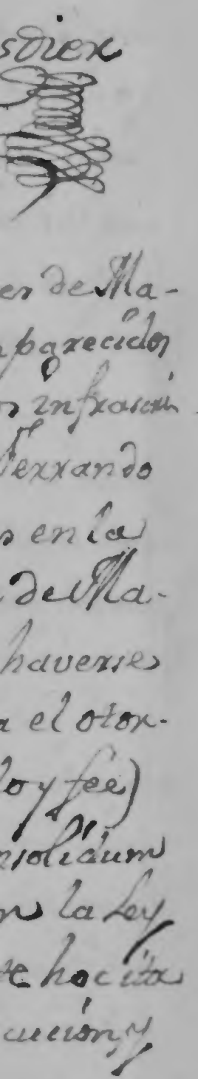 sdiex
es de Ma-
parecidos
infrascri
Ferrando
s en la
de Ma-
haverse
a el otor-
doy fee)
nsolidum
n la Ley
te hocita
cucion, y